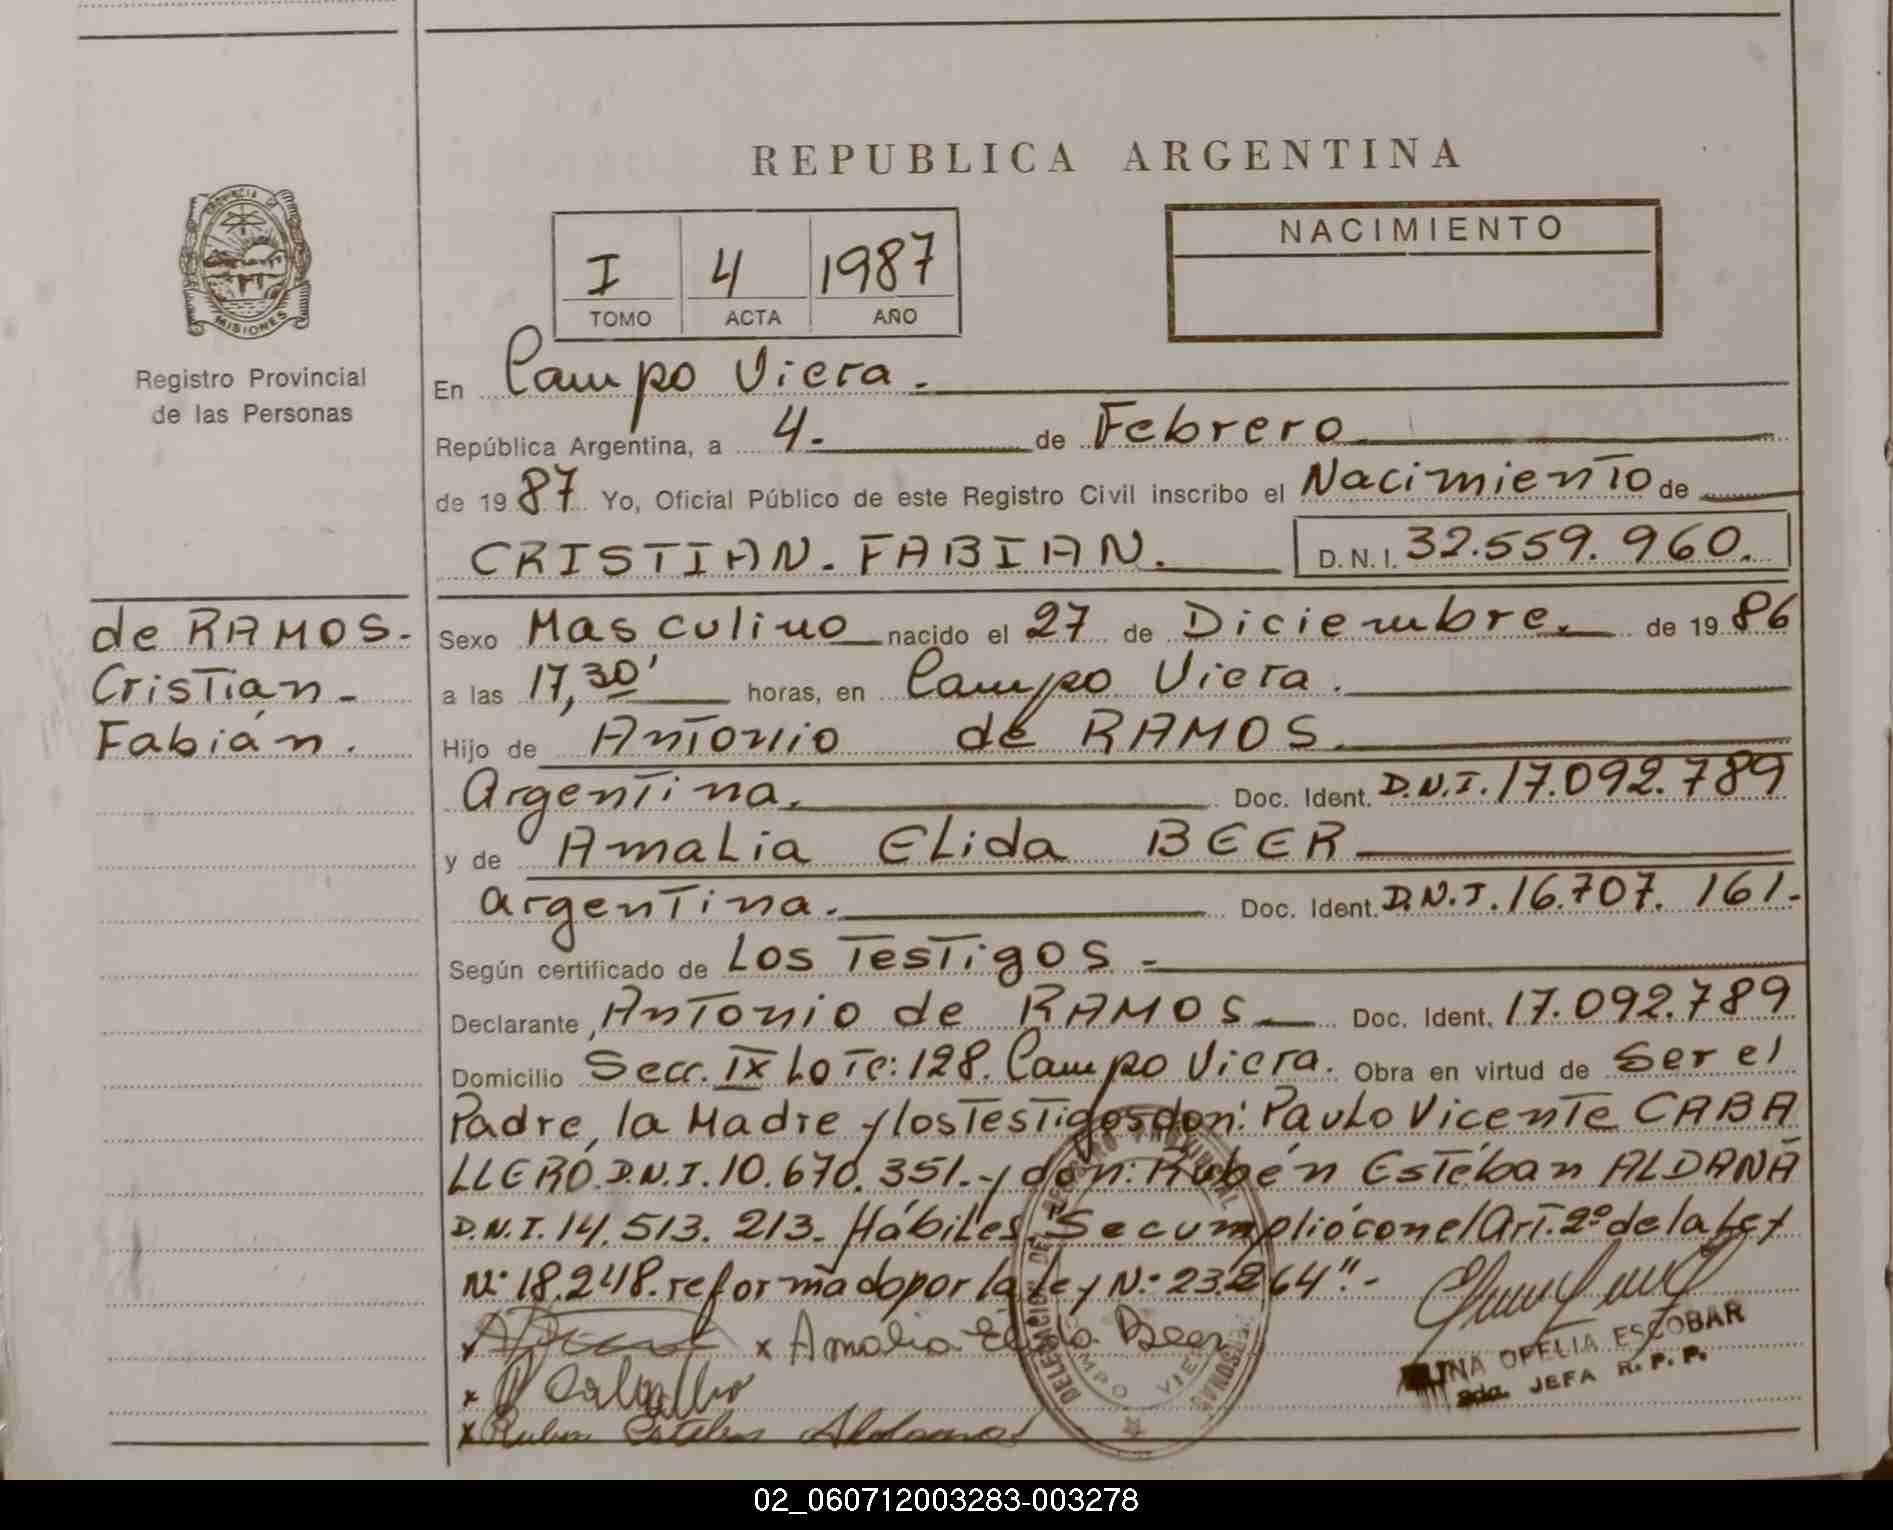 REPUBLICA ARGENTINA
PROVINCIA DE
MISIONES
Registro Provincial
de las Personas
I 4 1987
TOMO ACTA AÑO
NACIMIENTO
En Campo Viera.
República Argentina, a 4. de Febrero
de 1987 Yo, Oficial Público de este Registro Civil inscribo el Nacimiento de
CRISTIAN. FABIAN. D.N.I. 32.559.960.
de RAMOS.
Cristian
Fabián.
Sexo Masculino nacido el 27 de Diciembre. de 1986
a las 17,30' horas, en Campo Viera.
Hijo de Antonio de RAMOS.
Argentina. Doc. Ident. D.N.I. 17.092.789
y de Amalia Elida BEER
argentina. Doc. Ident. D.N.I. 16.707.161.-
Según certificado de Los Testigos -
Declarante, Antonio de RAMOS Doc. Ident. 17.092.789
Domicilio Secc. IX Lote: 128. Campo Viera. Obra en virtud de Ser el
Padre, la Madre y los Testigos don: Paulo Vicente CABA
LLERO. D.N.I. 10.670.351.- y don: Rubén Estéban ALDANA
D.N.I. 14.513.213. Hábiles. "Se cumplió con el Art. 2º de la Ley
Nº 18.248. reformado por la ley Nº 23.264".-
x x Amalia Elida Beer
x
x Ruben Esteban Aldana
DELEGACION DE REGISTRO PROVINCIAL PERSONAS
CAMPO VIERA
OFELIA ESCOBAR
2da. JEFA R. P. P.
02_060712003283-003278